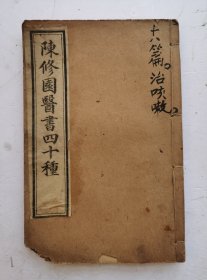 陳修園醫書四十種
十八篇治咳嗽